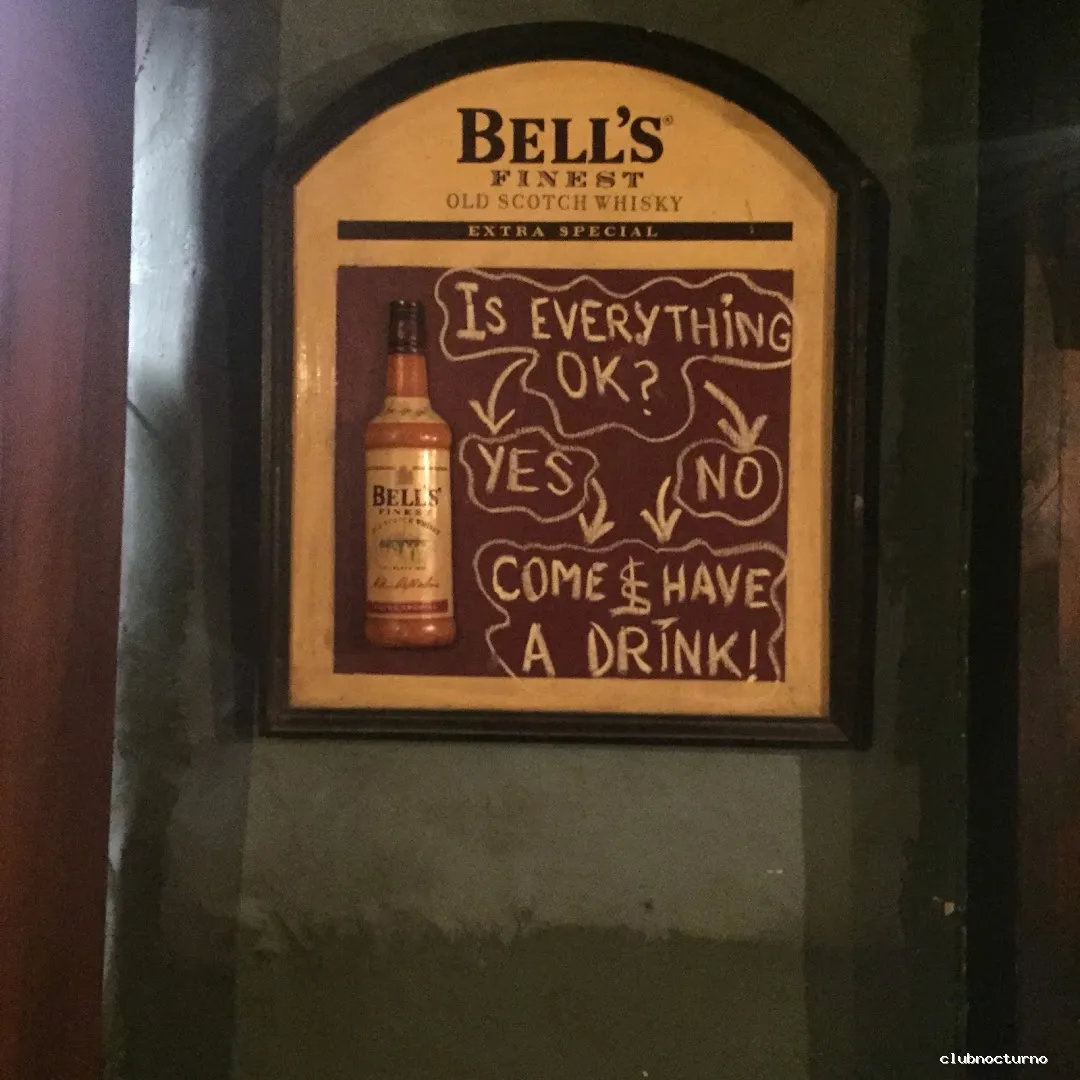 BELL'S®
FINEST
OLD SCOTCH WHISKY
EXTRA SPECIAL
IS EVERYTHING
OK?
YES
NO
COME & HAVE
A DRINK!
BELL'S
FINEST
OLD SCOTCH WHISKY
clubnocturno